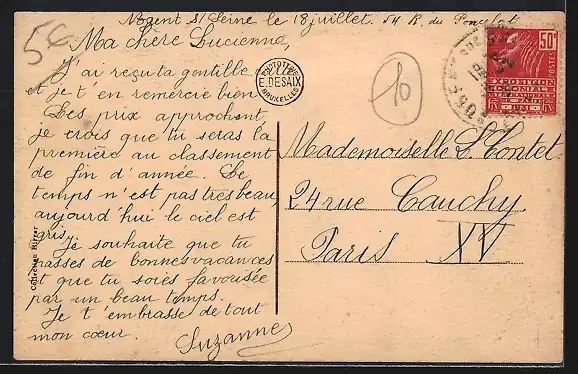 Nogent S/ Seine le 18 juillet. 54 R. du Poncelot
5€
Ma chère Lucienne,
J'ai reçu ta gentille carte
et je t'en remercie bien
Les prix approchent
je crois que tu seras la
première au classement
de fin d'année. Le
temps n'est pas très beau,
aujourd'hui le ciel est
gris.
Je souhaite que tu
passes de bonnes vacances
et que tu soies favorisée
par un beau temps.
Je t'embrasse de tout
mon cœur.
Suzanne
Collection
PHOTOTYPIE
E. DESAIX
BRUXELLES
10
50c
POSTES
EXPOSITION
COLONIALE
INTERNATIONALE
PARIS
1931
Mademoiselle L. Tontet
24 rue Cauchy
Paris XV